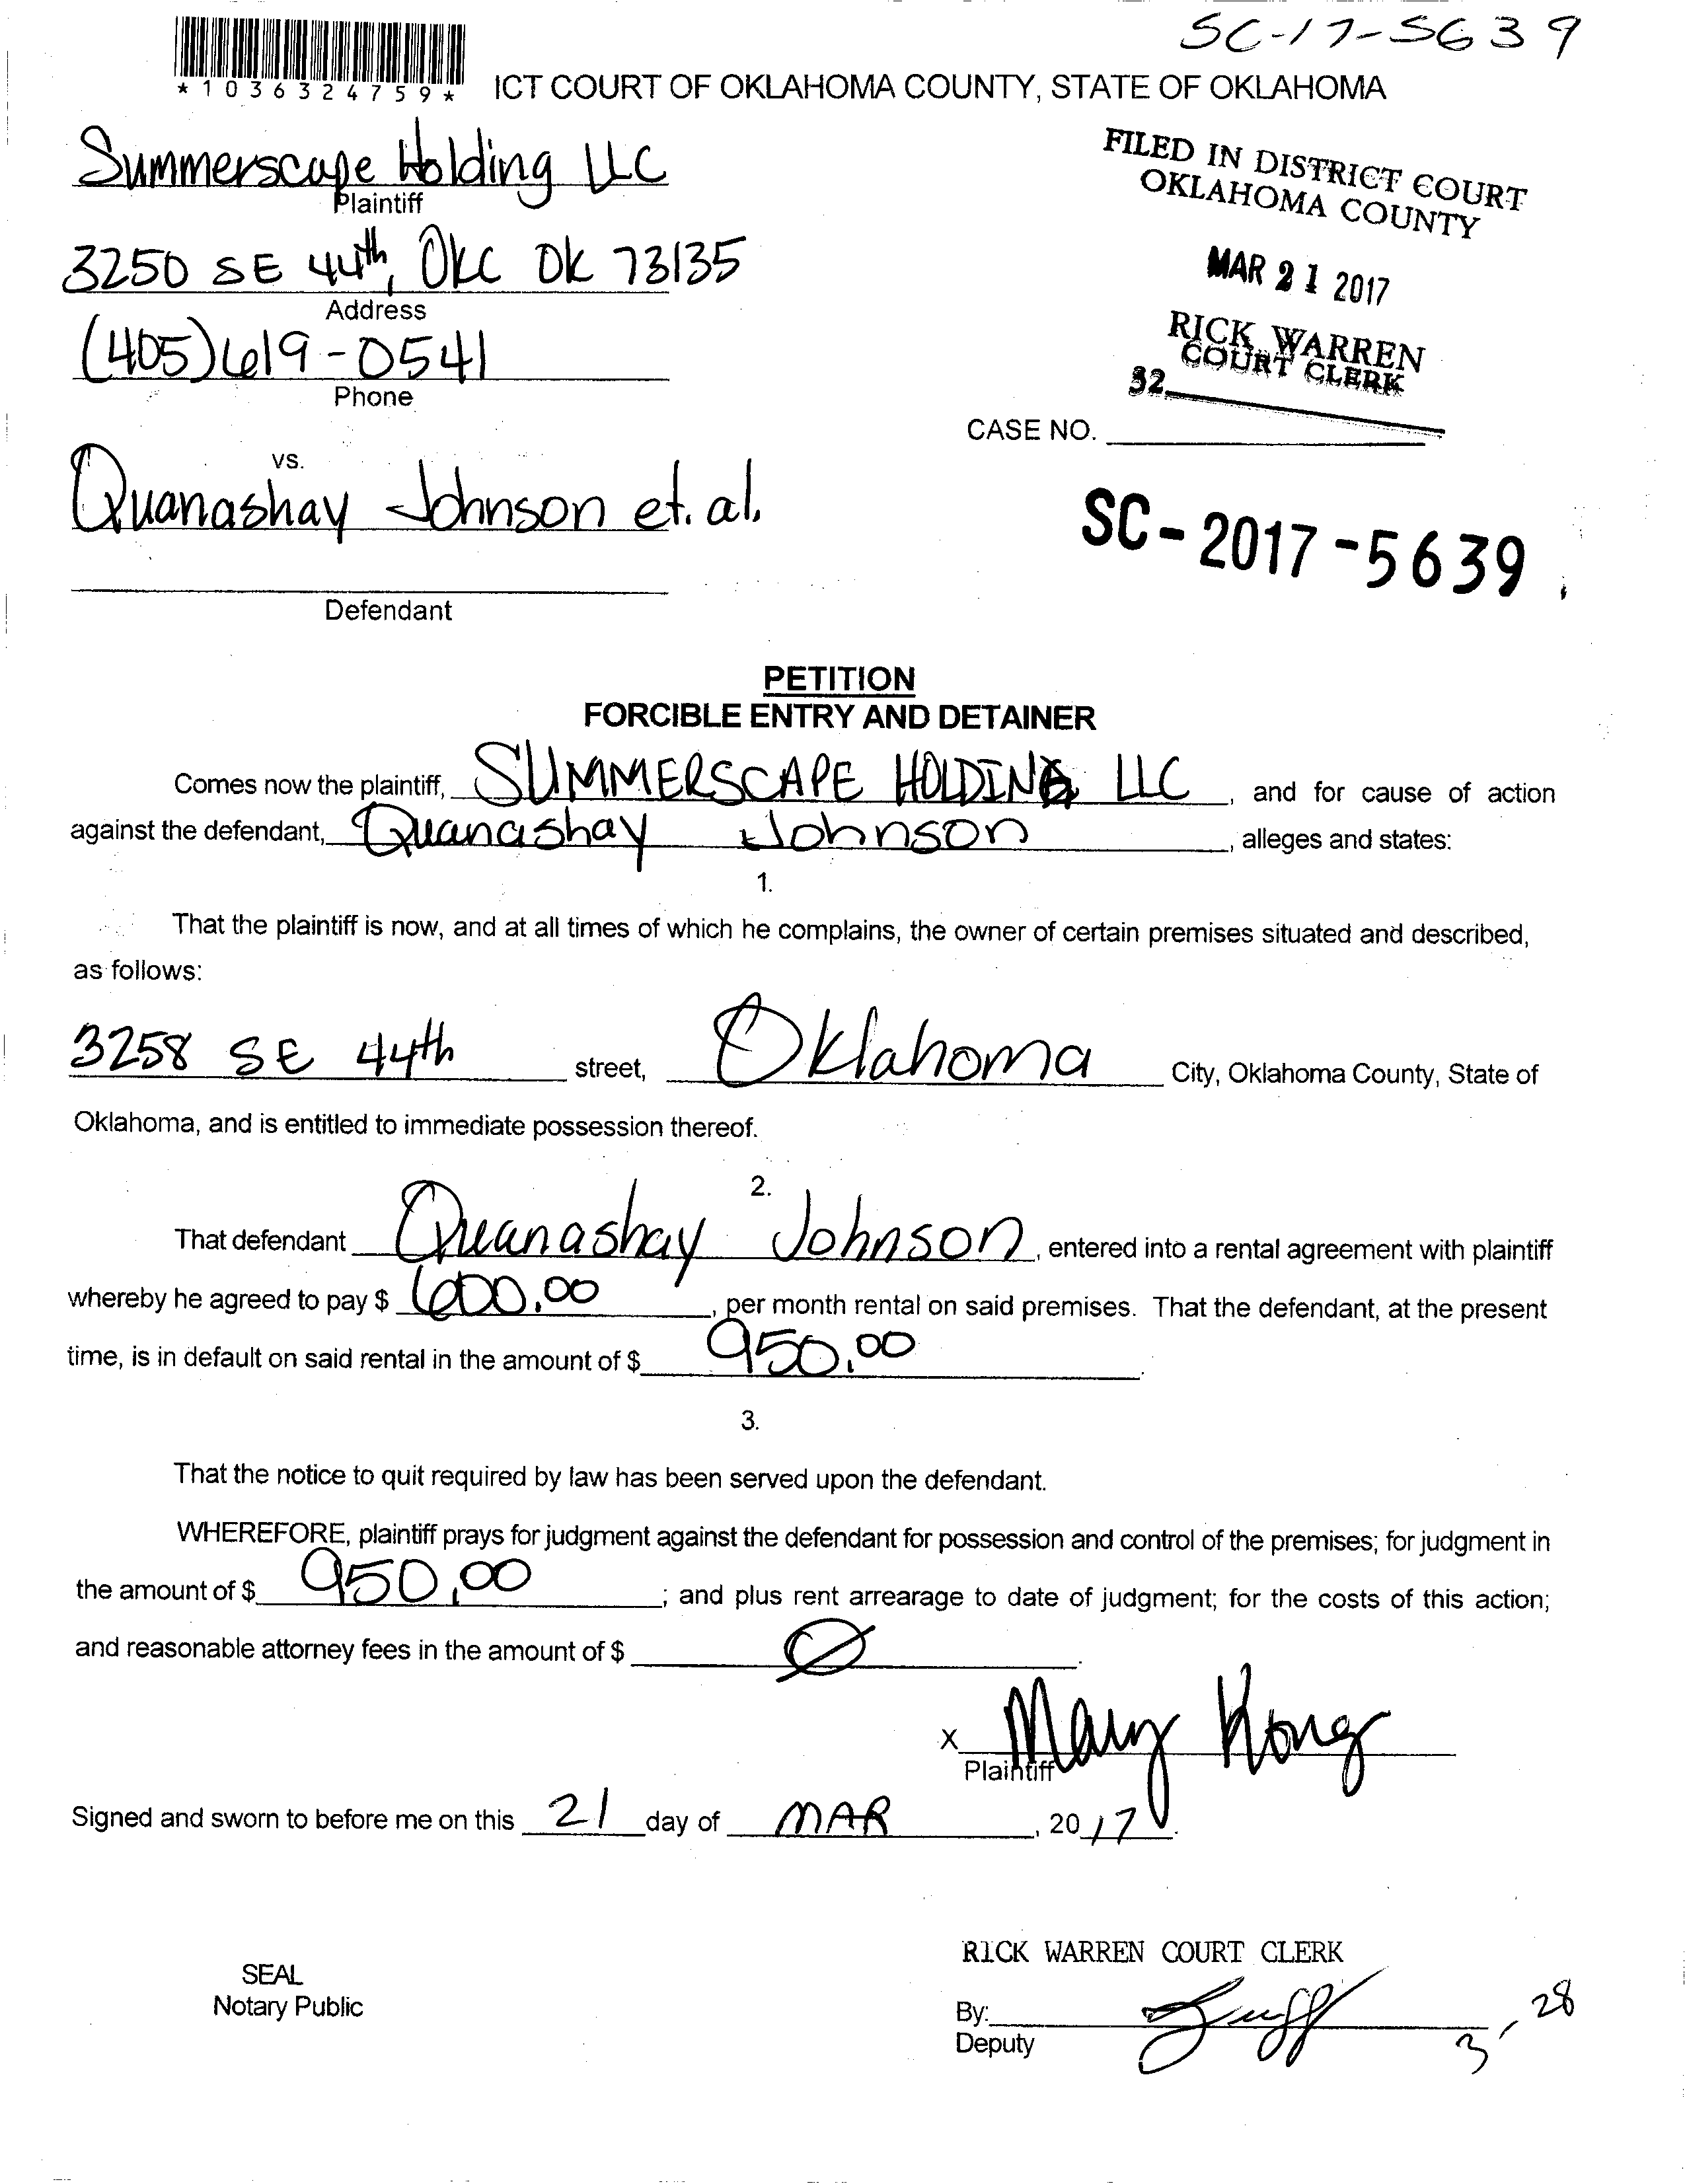 SC-17-5639
*1036324759*
ICT COURT OF OKLAHOMA COUNTY, STATE OF OKLAHOMA
Summerscape Holding LLC
Plaintiff
3250 SE 44th, OKC OK 73135
Address
(405)619-0541
Phone
FILED IN DISTRICT COURT
OKLAHOMA COUNTY
MAR 21 2017
RICK WARREN
COURT CLERK
32
CASE NO.
vs.
Quanashay Johnson et. al.
Defendant
SC-2017-5639
PETITION
FORCIBLE ENTRY AND DETAINER
Comes now the plaintiff, SUMMERSCAPE HOLDING LLC, and for cause of action
against the defendant, Quanashay Johnson, alleges and states:
1.
That the plaintiff is now, and at all times of which he complains, the owner of certain premises situated and described,
as follows:
3258 SE 44th street, Oklahoma City, Oklahoma County, State of
Oklahoma, and is entitled to immediate possession thereof.
2.
That defendant Quanashay Johnson, entered into a rental agreement with plaintiff
whereby he agreed to pay $ 600.00, per month rental on said premises. That the defendant, at the present
time, is in default on said rental in the amount of $ 950.00.
3.
That the notice to quit required by law has been served upon the defendant.
WHEREFORE, plaintiff prays for judgment against the defendant for possession and control of the premises; for judgment in
the amount of $ 950.00; and plus rent arrearage to date of judgment; for the costs of this action;
and reasonable attorney fees in the amount of $ Ø.
x Mary Kong
Plaintiff
Signed and sworn to before me on this 21 day of MAR, 2017.
RICK WARREN COURT CLERK
SEAL
Notary Public
By:
Deputy
3, 28